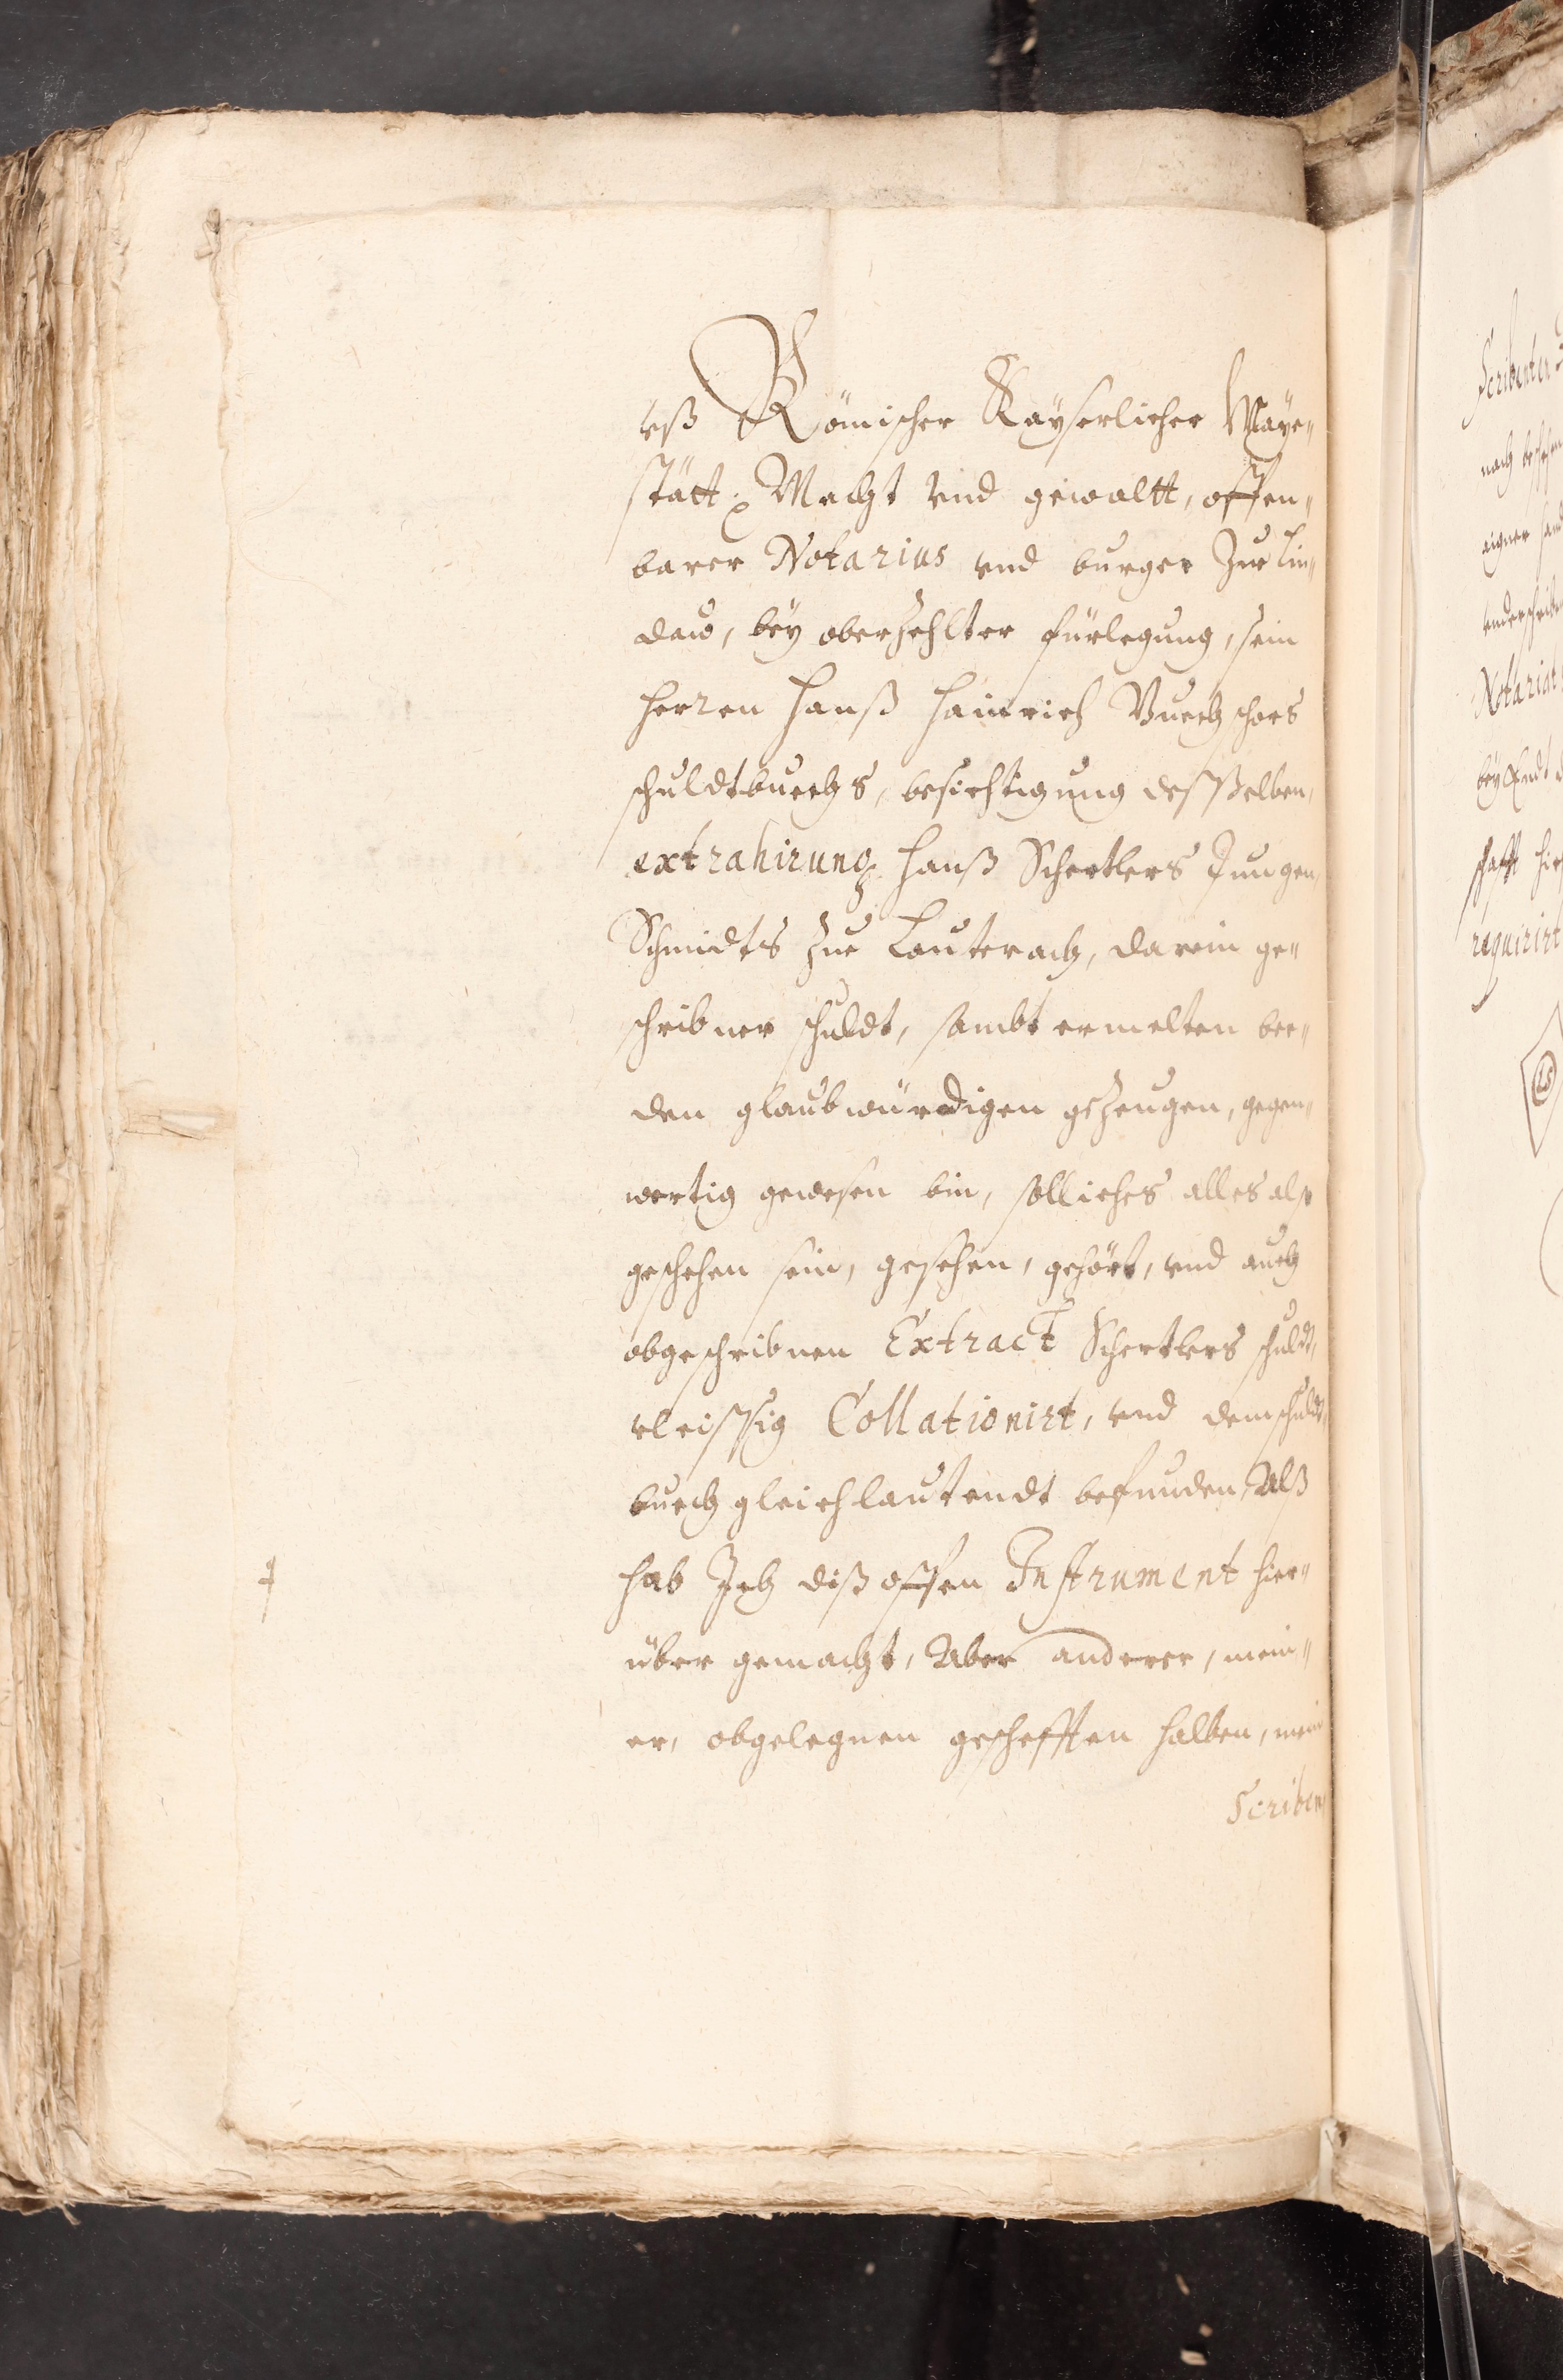 vß Römischer Kayserlicher Maye„
stätt. Macht vnd gewaltt, offen„
barer Notarius vnd burger Zue Lin„
daw, bey oberzehlter fürlegung, sein
herren Hanß Hainrich
schuldtbuechs, besichtigung deßselben,
extrahirung Hanß Schertlers Jungen,
Schmidts Zue Lauterach, darein ge„
schribner schuldt, sambt ermelten bee„
den glaubwürdigen gezeugen, gegen„
wertig gewesen bin, solliches alles also
geschehen sein, gesehen, gehört, vnd auch
obgeschribnen Extract Schertlers schuldt,
vleissig Collationirt, vnd dem schuldt,
buech gleichlautendt befunden, Alß
hab Ich diß offen Instrument hier„
über gemacht, Aber anderer, mein„
er, obgelegnen geschefften halben, mein
Scriben
Scribenten
nach
aigner
vnderschriben
Notariat
bey Endt
schafft
requirirt
LS